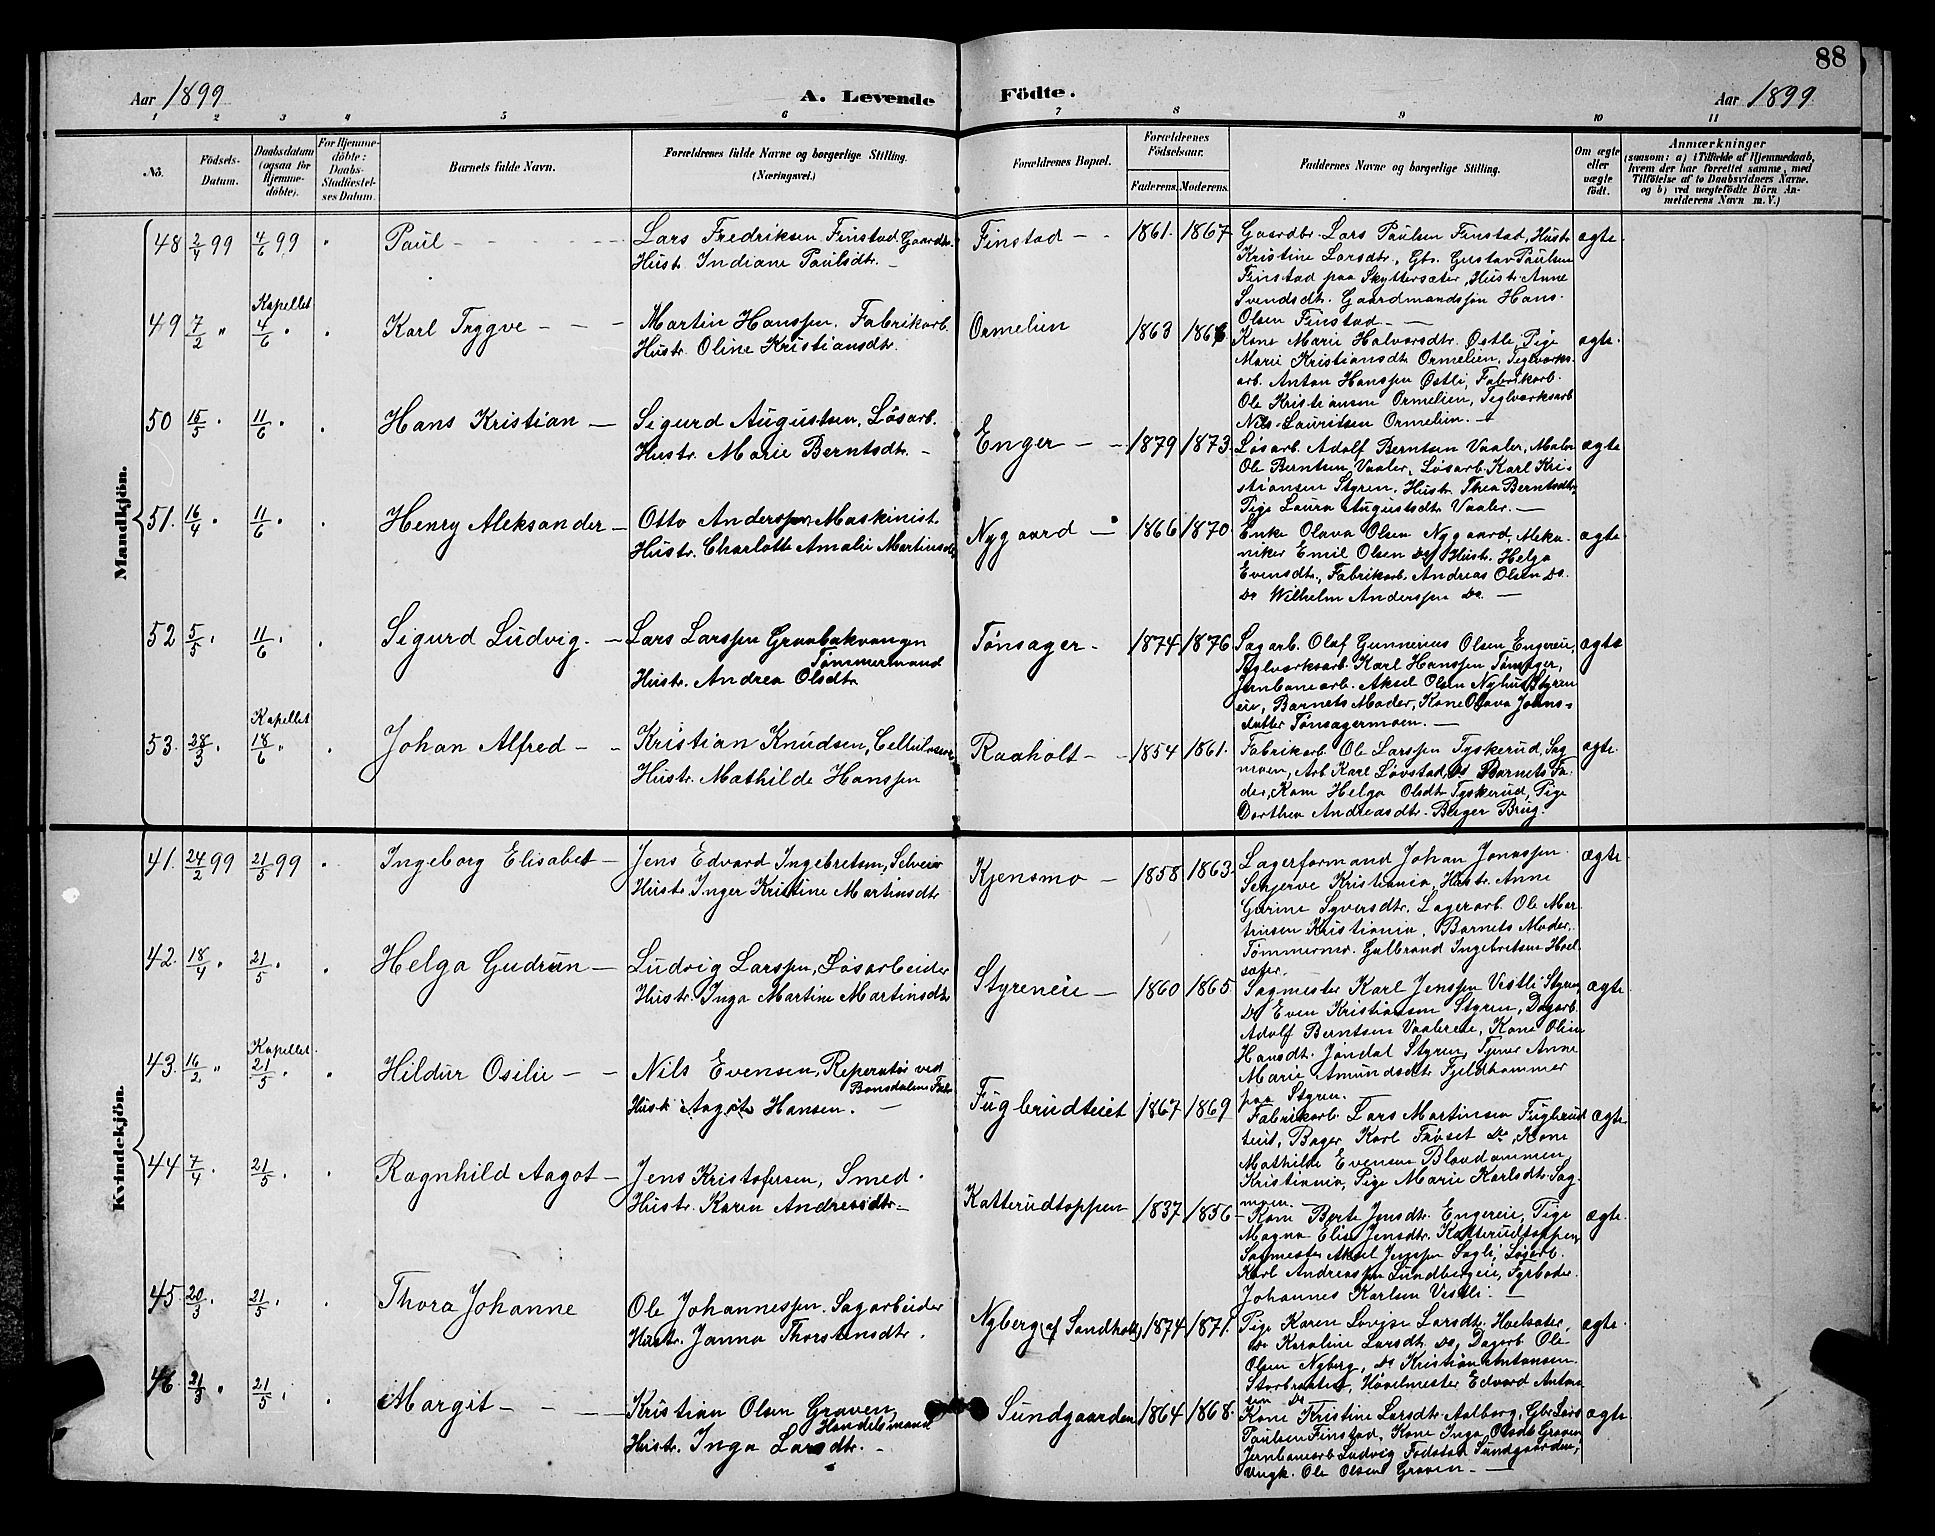 88
Aar 1899
A. Levende Födte.
Aar 1899
1 2 3 4 5 6 7 8 9 10 11
No.
Födsels-
Datum.
Daabsdatum
(ogsaa for
Hjemme-
döbte).
For Hjemme-
döbte:
Daabs-
Stadfæstel-
ses Datum.
Barnets fulde Navn.
Forældrenes fulde Navne og borgerlige Stilling.
(Næringsvei.)
Forældrenes Bopæl.
Forældrenes
Födselsaar.
Faderens. Moderens.
Faddernes Navne og borgerlige Stilling.
Om ægte
eller
uægte
födt.
Anmærkninger
(saasom: a) i Tilfælde af Hjemmedaab,
hvem der har forrettet samme, med
Tilföielse af to Daabsvidners Navne.
og b) ved uægtefödte Börn An-
melderens Navn m. V.)
Mandkjön.
48 2/4 99 4/6 99 Paul
Lars Fredriksen Finstad Gaardbr.
Hustr. Indiane Paulsdtr.
Finstad 1861 1867
Gaardbr. Lars Paulsen Finstad, Hustr.
Kristine Larsdtr., Gbr. Gustav Paulsen
Finstad paa Skyttersæter, Hustr. Anne
Svendsdtr. Gaardmandssøn Hans
Olsen Finstad
ægte
49 7/2 " Kapellet 4/6 Karl Tryggve
Martin Hanssen, Fabrikarb.
Hustr. Oline Kristiansdtr.
Ormelien 1863 1866
Kone Marie Halvorsdtr. Østli, Pige
Marie Kristiansdtr. Ormelien, Teglværks-
arb. Anton Hanssen Østli, Fabrikarb.
Ole Kristiansen Ormelien, Teglværksarb
Nils Lauritsen Ormelien.
ægte
50 15/5 11/6 Hans Kristian
Sigurd Augustsen, Løsarb.
Hustr. Marie Berntsdtr.
Enger 1879 1873
Løsarb. Adolf Berntsen Vaaler, Maler
Ole Berntsen Vaaler, Løsarb. Karl Kri-
stiansen Styren, Hustr. Thea Berntsdtr,
Pige Laura Augustsdtr. Vaaler.
ægte
51. 16/4 11/6 Henry Aleksander
Otto Anderssen Maskinist
Hustr. Charlotte Amalie Martinsdtr
Nygaard 1866 1870
Enke Olava Olsen Nygaard, Meka-
niker Emil Olsen Do, Hustr. Helga
Evensdtr., Fabrikarb. Andreas Olsen Do.
Do Wilhelm Anderssen Do.
ægte
52 5/5 11/6 Sigurd Ludvig
Lars Larssen Graabakvangen
Tømmermand
Hustr. Andrea Olsdtr
Tønsager 1874 1876
Sagarb. Olaf Gunnerius Olsen Engereie,
Teglværksarb. Karl Hanssen Tønsager,
Jernbanearb. Aksel Olsen Nyhus Styren
eie, Barnets Moder, Kone Olava Johns-
datter Tønsagermoen.
ægte
53. 28/3 Kapellet 18/6 Johan Alfred
Kristian Knudsen, Cellulosearb
Hustr. Mathilde Hanssen
Raaholt 1854 1861
Fabrikarb. Ole Larssen Tyskerud, Sag
moen, Arb Karl Løvstad, Do Barnets Fa-
der, Kone Helga Olsdtr Tyskerud, Pige
Dorthea Andreasdtr. Berger Brug.
ægte
Kvindekjön.
41. 24/2 99 21/5 99 Ingeborg Elisabet
Jens Edvard Ingebretsen, Selveier
Hustr. Inger Kristine Martinsdtr
Kjensmo 1858 1863
Lagerformand Johan Jonassen
Kristiania, Hustr. Anne
Gurine Syversdtr. Lagerarb. Ole Mar-
tinsen Kristiania, Barnets Moder,
Tømmerm. Gulbrand Ingebretsen Hoel-
sæter.
ægte
42. 18/4 21/5 Helga Gudrun
Ludvig Larssen, Løsarbeider
Hustr. Inga Martine Martinsdtr
Styreneie 1860 1865
Sagmester Karl Jenssen Vestli Styren,
Do Even Kristiansen Styren, Dagarb.
Adolf Berntsen Vaalereie, Kone Oline
Hansdtr. Jøndal Styren, Tjener Anne
Marie Amundsdtr Fjeldhammer
paa Styren.
ægte
43. 16/2 " Kapellet 21/5 Hildur Osilie
Nils Evensen, Reparatør ved
Bønsdalens Fabr.
Hustr. Aagot Hansen.
Fuglerudteiet 1867 1869
Fabrikarb. Lars Martinsen Fuglerud
teiet, Bager Karl Frøset Do, Kone
Mathilde Evensen Blaadammen
Kristiania, Pige Marie Karlsdtr. Sag-
moen.
ægte
44 7/4 21/5 Ragnhild Aagot
Jens Kristofersen, Smed.
Hustr. Karen Andreasdtr.
Katterudtoppen 1837 1856
Kone Berte Jensdtr. Engereie, Pige
Magna Elise Jensdtr. Katterudtoppen,
Sagmester Aksel Jenssen Sagli, Løsarb.
Karl Andreassen Sundbyeie, Fyrbøder
Johannes Karlsen Vestli.
ægte
45 20/3 21/5 Thora Johanne
Ole Johannessen. Sagarbeider
Hustr. Janna Thorstensdtr.
Nyberg af Sandholt 1874 1871
Pige Karen Lovise Larsdtr. Hoelsæter,
Do Karoline Larsdtr. Do, Dagarb. Ole
Olsen Nyberg, Do Kristian Antonsen
Storbraaten, Høvelmester Edvard Anton-
sen Do
ægte
46 21/3 " 21/5 Margit
Kristian Olsen Graven,
Handelsmand
Hustr. Inga Larsdtr.
Sundgaarden 1864 1868
Kone Kristine Larsdtr. Aalborg, Gbr Lars
Paulsen Finstad, Kone Inga Olsdtr Graven
Jernbanearb Ludvig Fodstad Sundgaarden,
Ungk. Ole Olsen Graven.
ægte